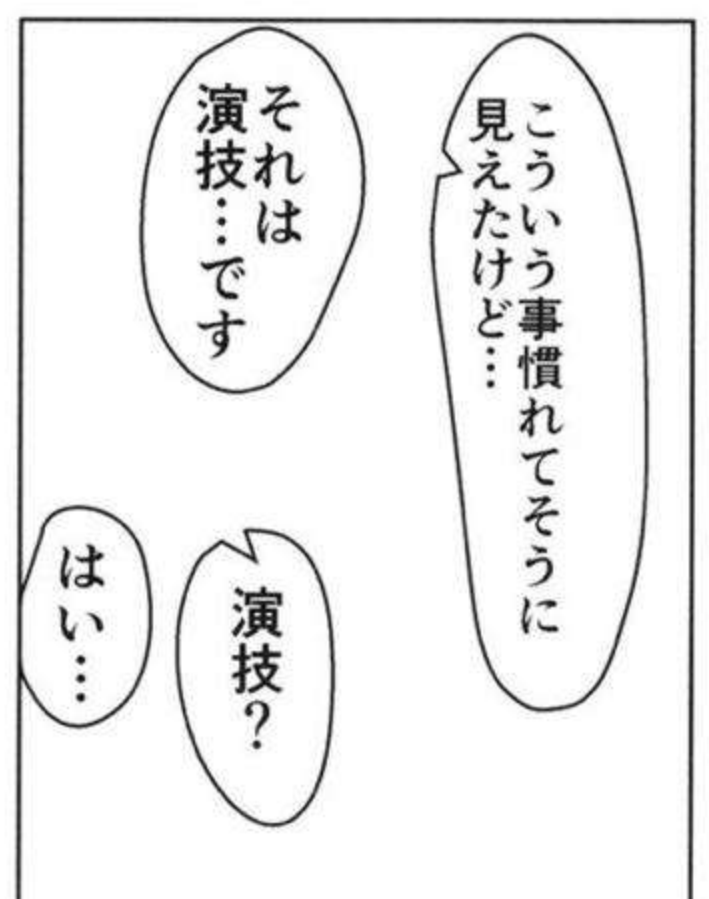 こういう事慣れてそうに
見えたけど…
それは
演技…です
演技?
はい…